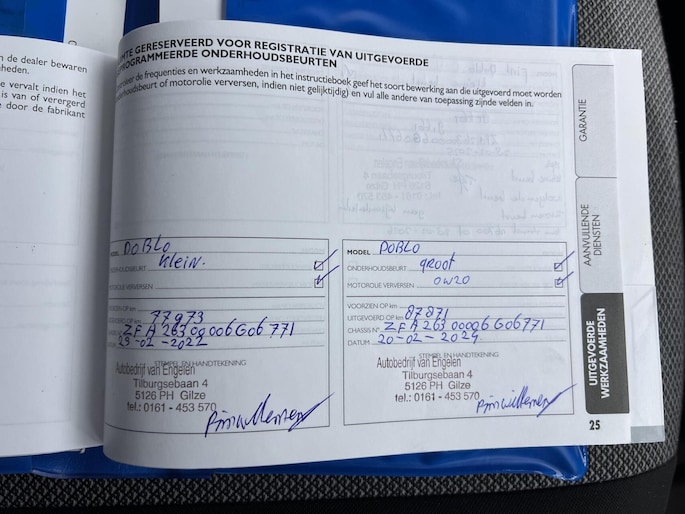 n de dealer bewaren
heden.
e vervalt indien het
is van of verergerd
e door de fabrikant
MTE GERESERVEERD VOOR REGISTRATIE VAN UITGEVOERDE
PROGRAMMEERDE ONDERHOUDSBEURTEN
de frequenties en werkzaamheden in het instructieboek geef het soort bewerking aan die uitgevoerd moet worden
derhoudsbeurt of motorolie verversen, indien niet gelijktijdig) en vul alle andere van toepassing zijnde velden in.
GARANTIE
AANVULLENDE
DIENSTEN
UITGEVOERDE
WERKZAAMHEDEN
DOBLO
ONDERHOUDSBEURT Klein.
MOTOROLIE VERVERSEN
VOORZIEN OP km
77973
ZFA26300006G06771
23-02-2022
STEMPEL EN HANDTEKENING
Autobedrijf van Engelen
Tilburgsebaan 4
5126 PH Gilze
tel.: 0161 - 453 570
MODEL DOBLO
ONDERHOUDSBEURT groot
MOTOROLIE VERVERSEN 0W20
VOORZIEN OP km
UITGEVOERD OP km 87871
CHASSIS N° ZFA26300006G06771
DATUM 20-02-2024
STEMPEL EN HANDTEKENING
Autobedrijf van Engelen
Tilburgsebaan 4
5126 PH Gilze
tel.: 0161 - 453 570
25